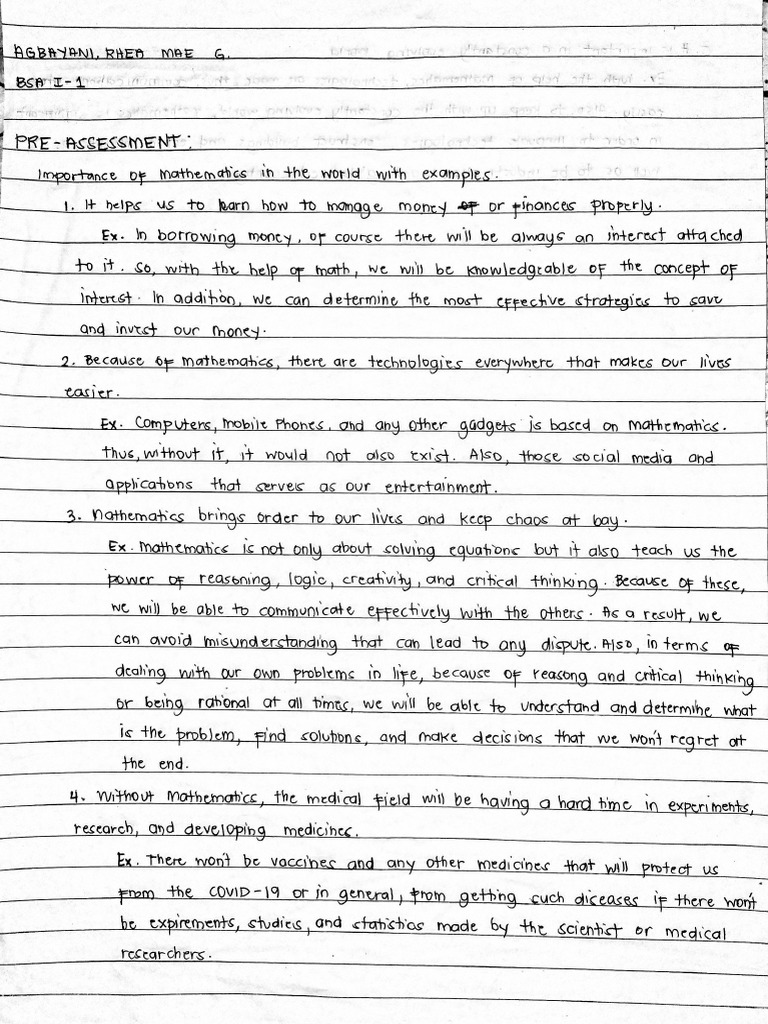 AGBAYANI, RHEA MAE G.
BSA I-1
PRE-ASSESSMENT:
Importance of mathematics in the world with examples.
1. It helps us to learn how to manage money of or finances properly.
Ex. In borrowing money, of course there will be always an interest attached
to it. So, with the help of math, we will be knowledgeable of the concept of
interest. In addition, we can determine the most effective strategies to save
and invest our money.
2. Because of mathematics, there are technologies everywhere that makes our lives
easier.
Ex. Computers, Mobile Phones, and any other gadgets is based on mathematics.
Thus, without it, it would not also exist. Also, those social media and
applications that serves as our entertainment.
3. Mathematics brings order to our lives and keep chaos at bay.
Ex. Mathematics is not only about solving equations but it also teach us the
power of reasoning, logic, creativity, and critical thinking. Because of these,
we will be able to communicate effectively with the others. As a result, we
can avoid misunderstanding that can lead to any dispute. Also, in terms of
dealing with our own problems in life, because of reasong and critical thinking
or being rational at all times, we will be able to understand and determine what
is the problem, find solutions, and make decisions that we won't regret at
the end.
4. Without Mathematics, the medical field will be having a hard time in experiments,
research, and developing medicines.
Ex. There won't be vaccines and any other medicines that will protect us
from the COVID-19 or in general, from getting such diseases if there won't
be expirements, studies, and statistics made by the scientist or medical
researchers.